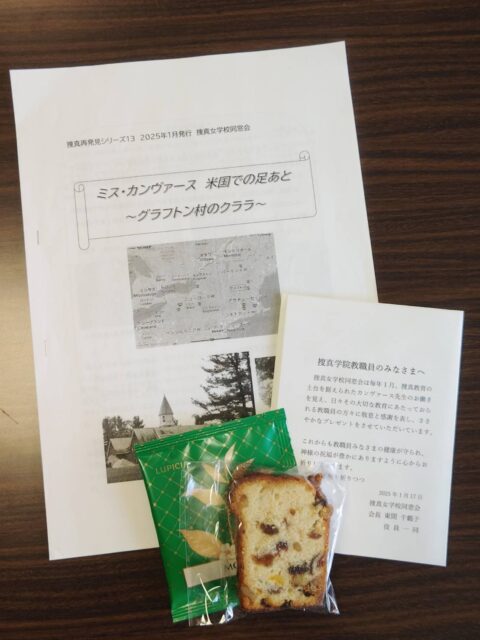 捜真再発見シリーズ13 2025年1月発行 捜真女学校同窓会
ミス・カンヴァース 米国での足あと
～グラフトン村のクララ～
捜真学院教職員のみなさまへ
捜真女学校同窓会は毎年1月、捜真教育の
土台を据えられたカンヴァース先生のお働き
を覚え、日々その大切な教育にあたっておら
れる教職員の方々に敬意と感謝を表し、ささ
やかなプレゼントをさせていただいています。
これからも教職員みなさまの健康が守られ、
神様の祝福が豊かにありますように心からお
祈り
ます。
祈りつつ
2025年1月17日
捜真女学校同窓会
会長 東間 千鶴子
役員一同
LUPICI